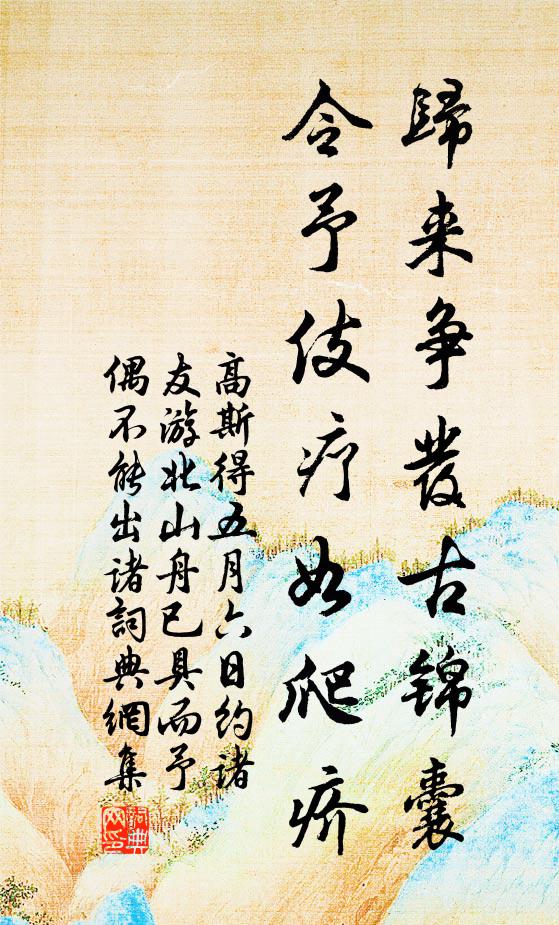 歸来争發古錦囊
令予伎疗如爬疥
高斯得五月六日约诸
友游北山舟已具而予
偶不能出诸詞典網集